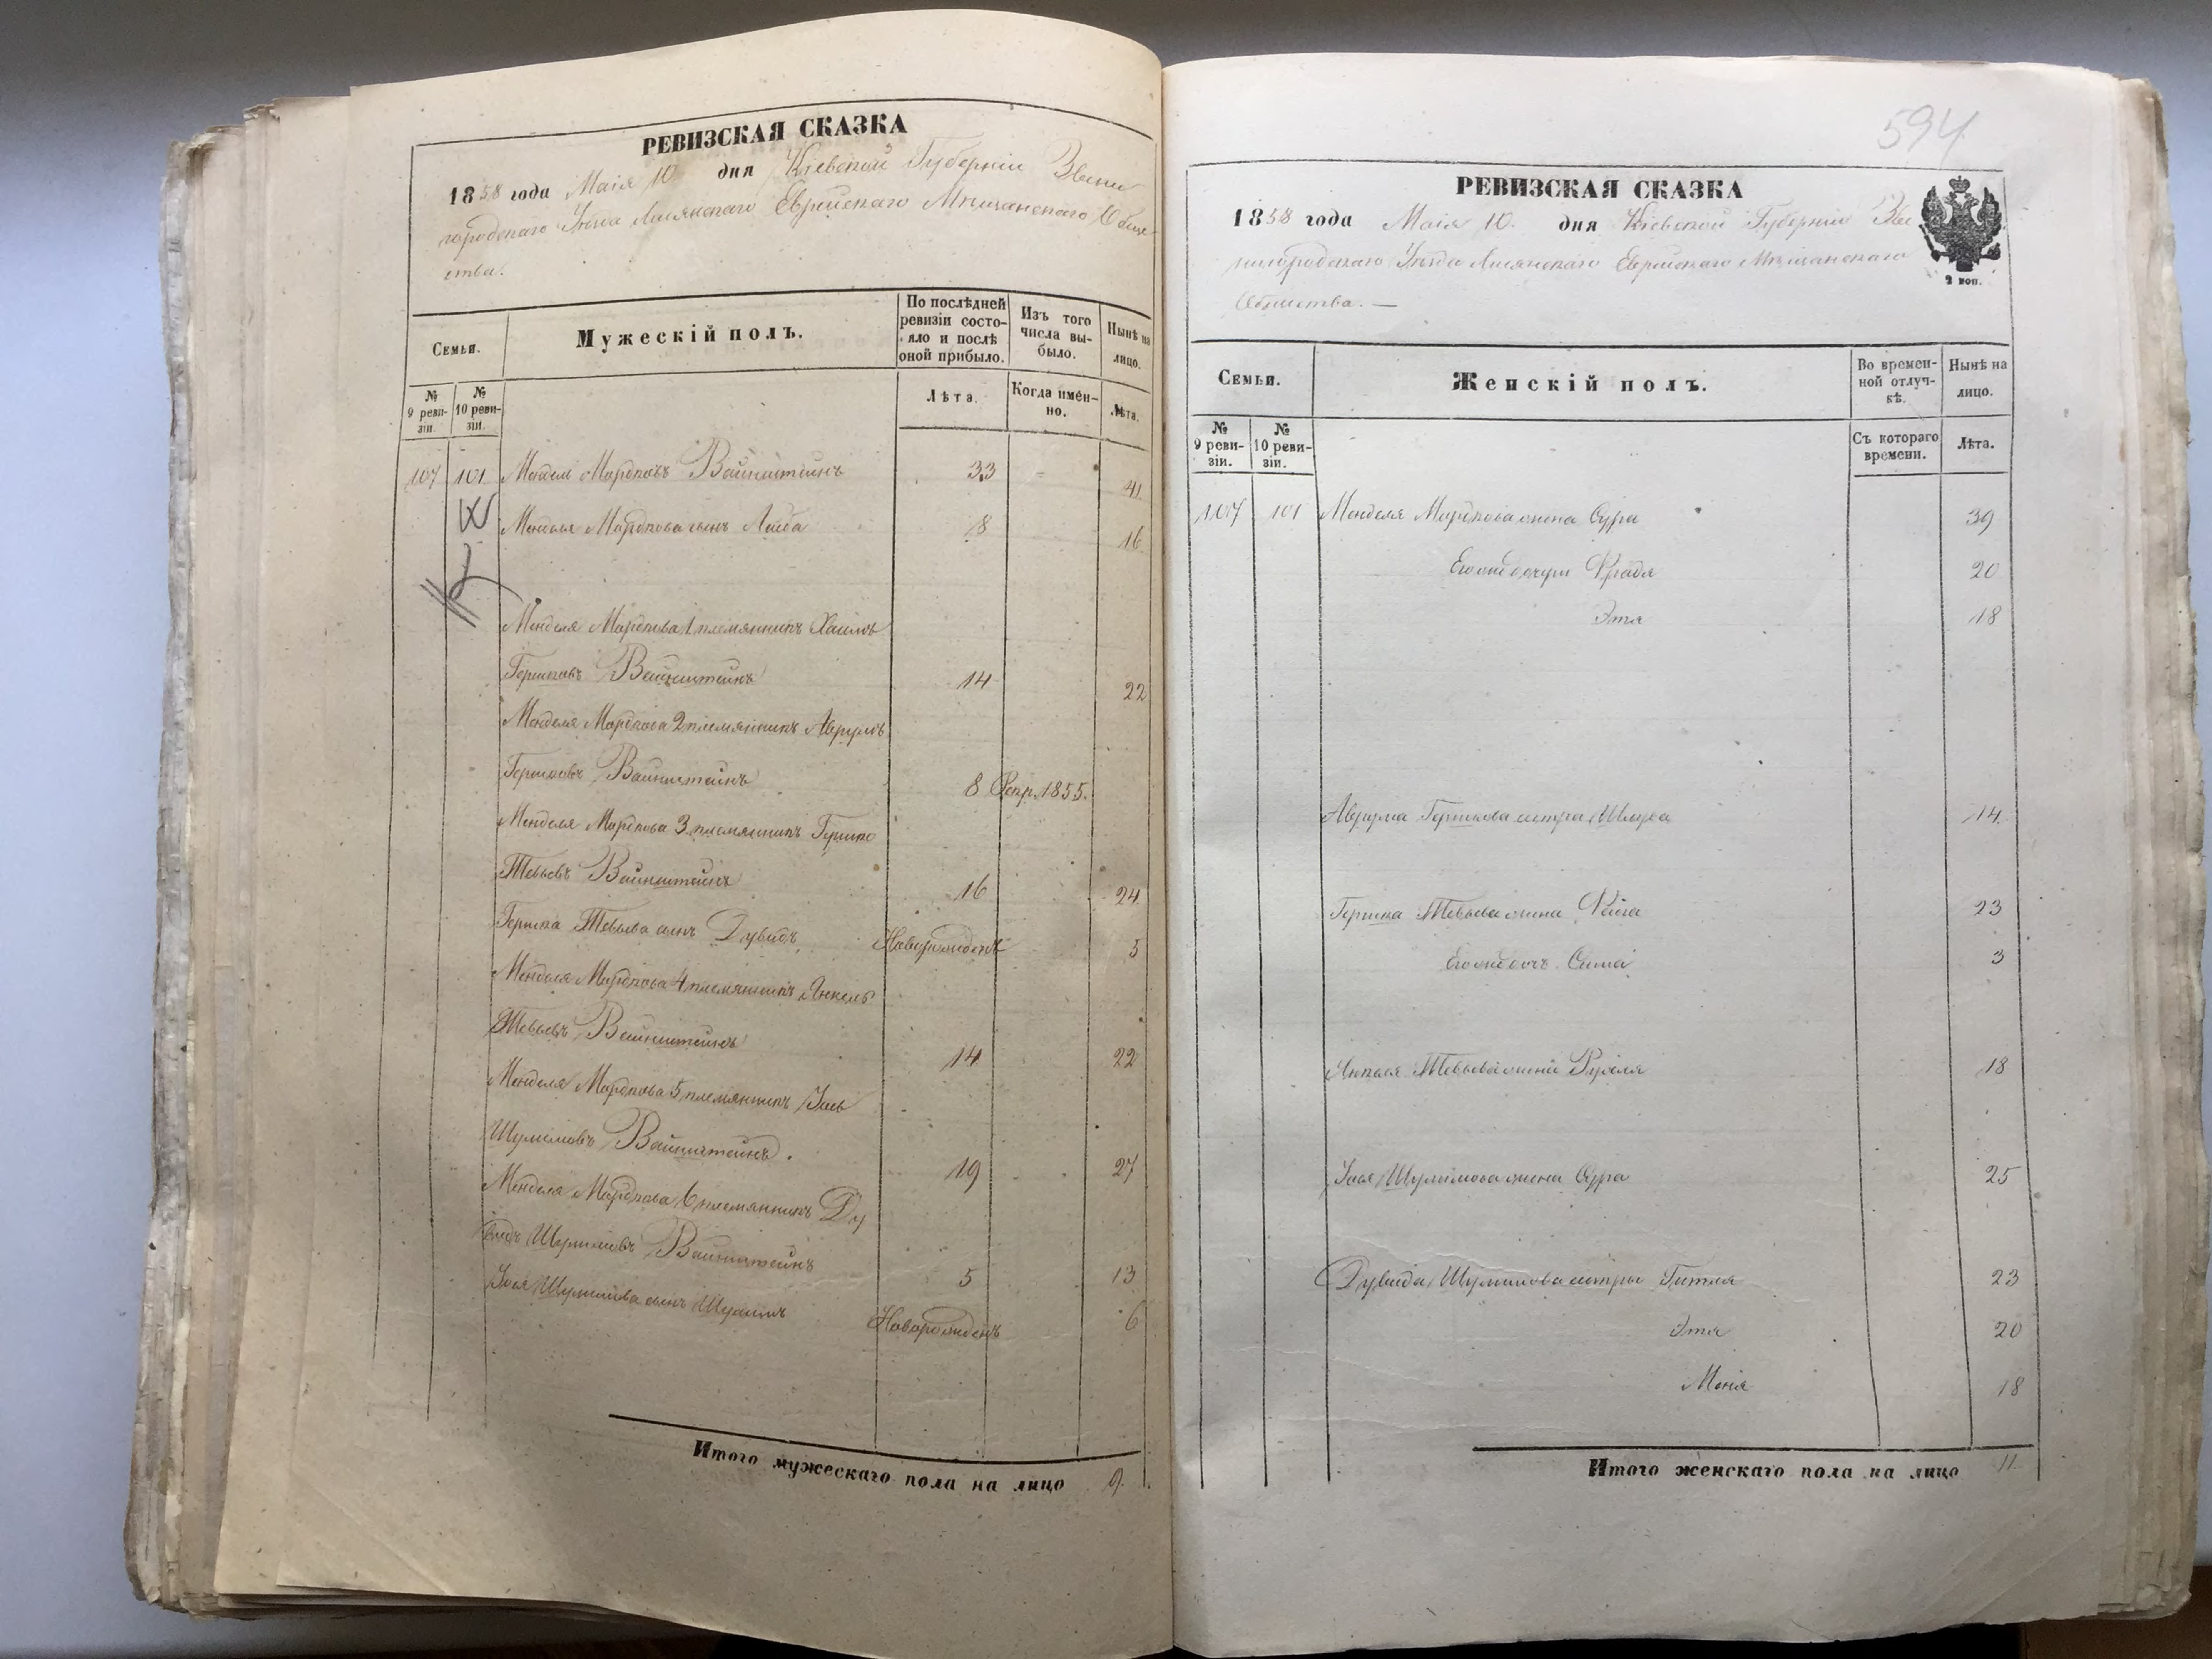 РЕВИЗСКАЯ СКАЗКА
1858 года Маія 10 дня Кіевской Губерніи Звени
городскаго Уѣзда Лисянскаго Еврейскаго Мѣщанскаго Обще
ства.
Семьи.
Мужескій полъ.
По послѣдней ревизіи состо-яло и послѣ оной прибыло.
Изъ того числа вы-было.
Нынѣ на лицо.
№ 9 реви-зіи.
№ 10 реви-зіи.
Лѣта.
Когда имен-но.
Лѣта.
107 101 Мордковъ Вайнштейнъ 33 41
Менделя Мордкова сынъ Лейба 8 16
Менделя Мордкова 1 племянникъ Хаимъ
Гершковъ Вайнштейнъ 14 22
Менделя Мордкова 2 племянникъ Аврумъ
Гершковъ Вайнштейнъ 8 1855.
Менделя Мордкова 3 племянникъ Гершко
Тевьевъ Вайнштейнъ 16 24
Гершка Тевьева сынъ Дувидъ Новорожденъ 5
Менделя Мордкова 4 племянникъ Янкель
Тевьевъ Вайнштейнъ 14 22
Менделя Мордкова 5 племянникъ Іось
Шулимовъ Вайнштейнъ. 19 27
Менделя Мордкова 6 племянникъ Ду
видъ Шулимовъ Вайнштейнъ 5 13
Іося Шулимова сынъ Шулимъ Новорожденъ 6
Итого мужескаго пола на лицо 9.
594
РЕВИЗСКАЯ СКАЗКА
1858 года Маія 10. дня Кіевской Губерніи Зве
нигородскаго Уѣзда Лисянскаго Еврейскаго Мѣщанскаго
Общества. —
2 коп.
Семьи.
Женскій полъ.
Во времен-ной отлуч-кѣ.
Нынѣ на лицо.
№ 9 реви-зіи.
№ 10 реви-зіи.
Съ котораго времени.
Лѣта.
107 101 Менделя Мордкова жена Сура 39
Его дочери Фрадя 20
Этя 18
Аврума Гершкова сестра 14
Гершка Тевьева жена Фейга 23
Его дочь Сима 3
Янкеля Тевьева жена Рухля 18
Іося Шулимова жена Сура 25
Дувида Шулимова сестры Гитля 23
Этя 20
Меня 18
Итого женскаго пола на лицо 11